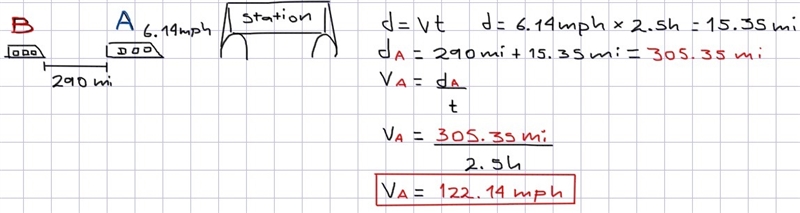 B A 6.14mph Station
290 mi
d = vt d = 6.14mph × 2.5h = 15.35 mi
dA = 290mi + 15.35mi = 305.35 mi
VA = dA
t
VA = 305.35 mi
2.5h
VA = 122.14 mph